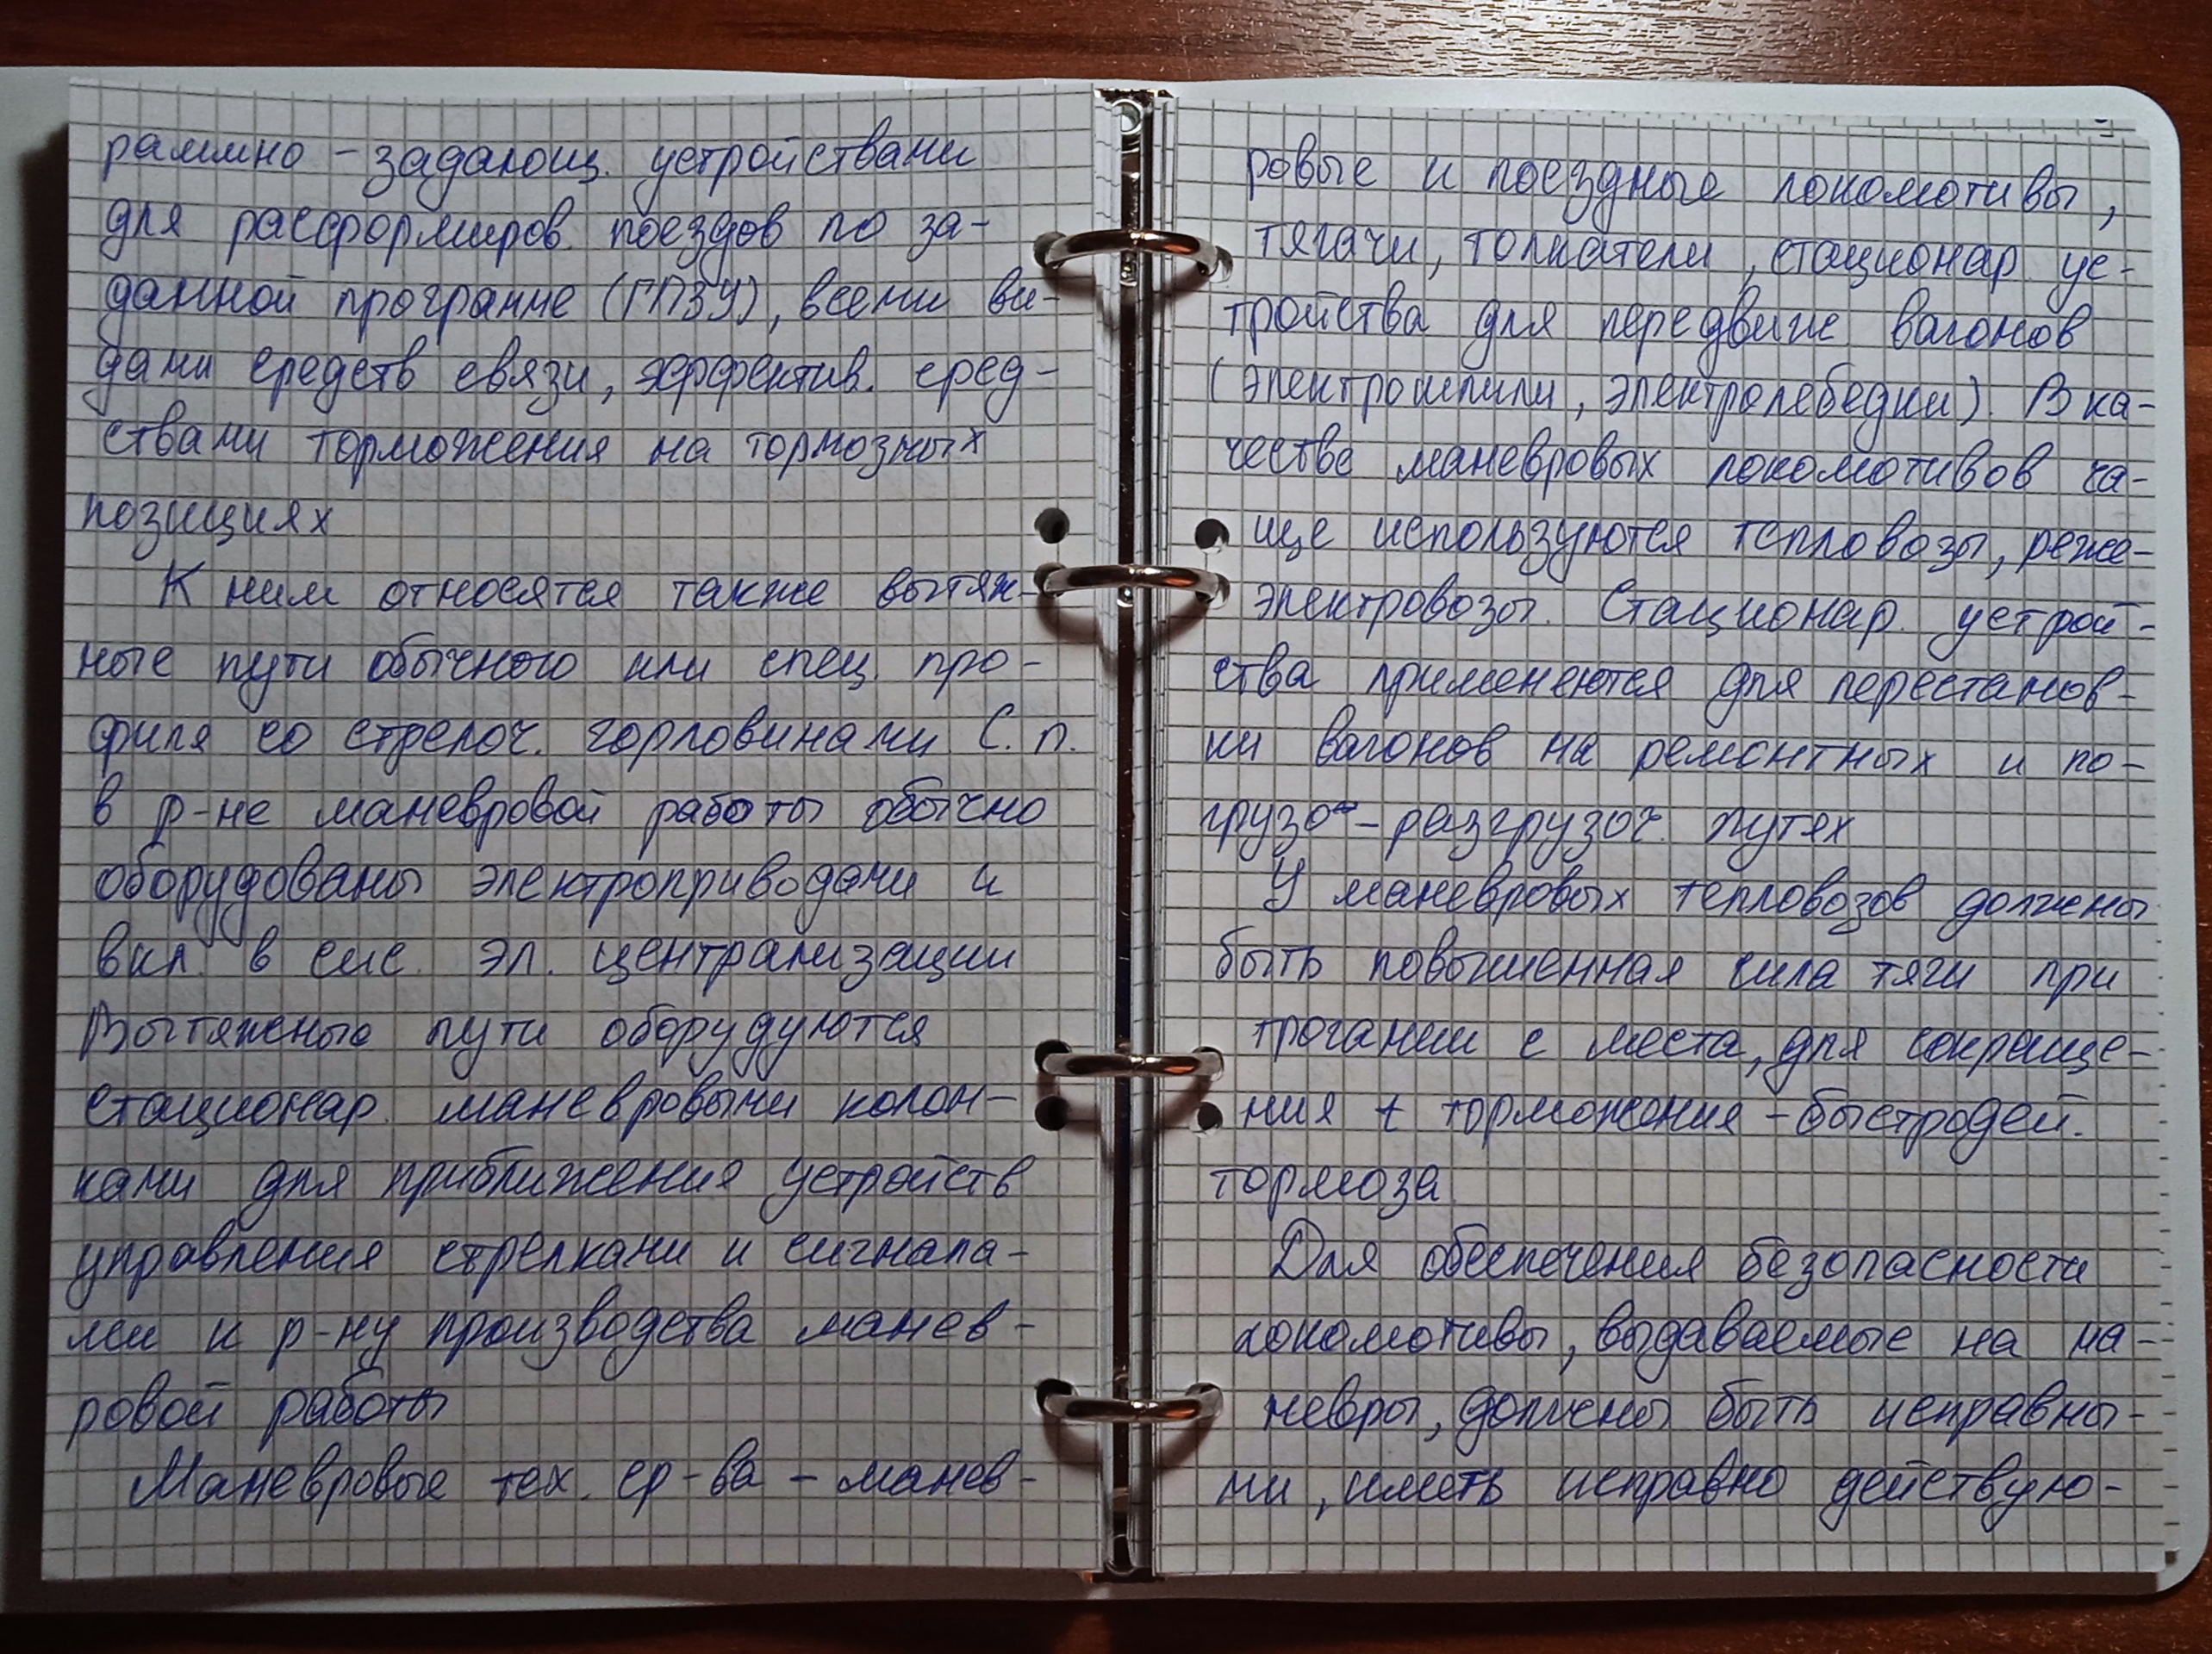 раммно-задающ. устройствами
для расформиров. поездов по за-
данной программе (ГПЗУ), всеми ви-
дами средств связи, эффектив. сред-
ствами торможения на тормозных
позициях
К ним относятся также вытяж-
ные пути обычного или спец. про-
филя со стрелоч. горловинами. С.п.
в р-не маневровой работы обычно
оборудованы электроприводами и
вкл. в сис. эл. централизации
Вытяжные пути оборудуются
стационар. маневровыми колон-
ками для приближения устройств
управления стрелками и сигнала-
ми к р-ну производства манев-
ровой работы
Маневровые тех. ср-ва - манев-
ровые и поездные локомотивы,
тягачи, толкатели, стационар. ус-
тройства для передвиж. вагонов
(электрошпили, электролебедки). В ка-
честве маневровых локомотивов ча-
ще используются тепловозы, реже-
электровозы. Стационар. устрой-
ства применяются для перестанов-
ки вагонов на ремонтных и по-
грузо-разгрузоч. путях
У маневровых тепловозов должены
быть повышенная сила тяги при
трогании с места, для сокраще-
ния t торможения - быстродей.
тормоза.
Для обеспечения безопасности
локомотивы, выдаваемые на ма-
невры, должены быть исправны-
ми, иметь исправно действую-